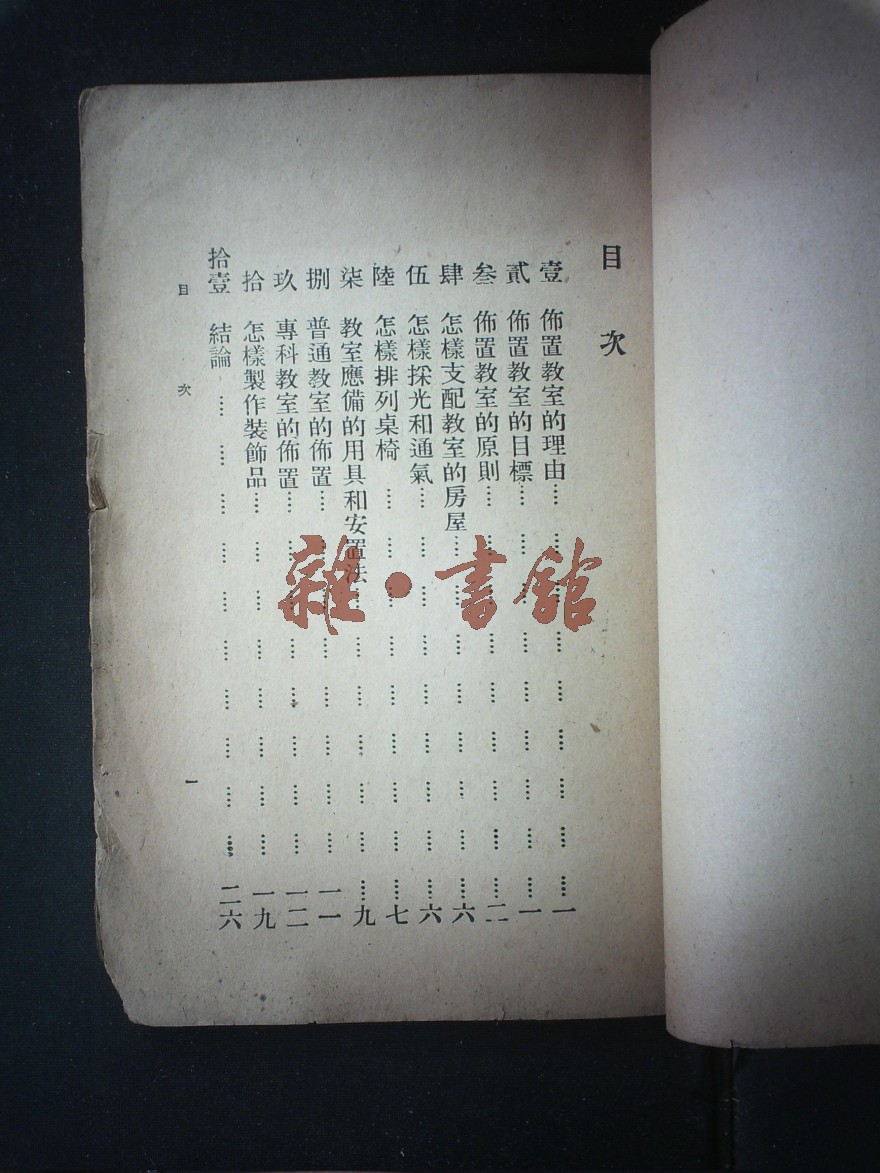 目次
壹 佈置教室的理由⋯⋯一
貳 佈置教室的目標⋯⋯一
叁 佈置教室的原則⋯⋯二
肆 怎樣支配教室的房屋⋯⋯六
伍 怎樣採光和通氣⋯⋯六
陸 怎樣排列桌椅⋯⋯七
柒 教室應備的用具和安置法⋯⋯九
捌 普通教室的佈置⋯⋯一一
玖 專科教室的佈置⋯⋯一二
拾 怎樣製作裝飾品⋯⋯一九
拾壹 結論⋯⋯二六
目次 一
雜·書館